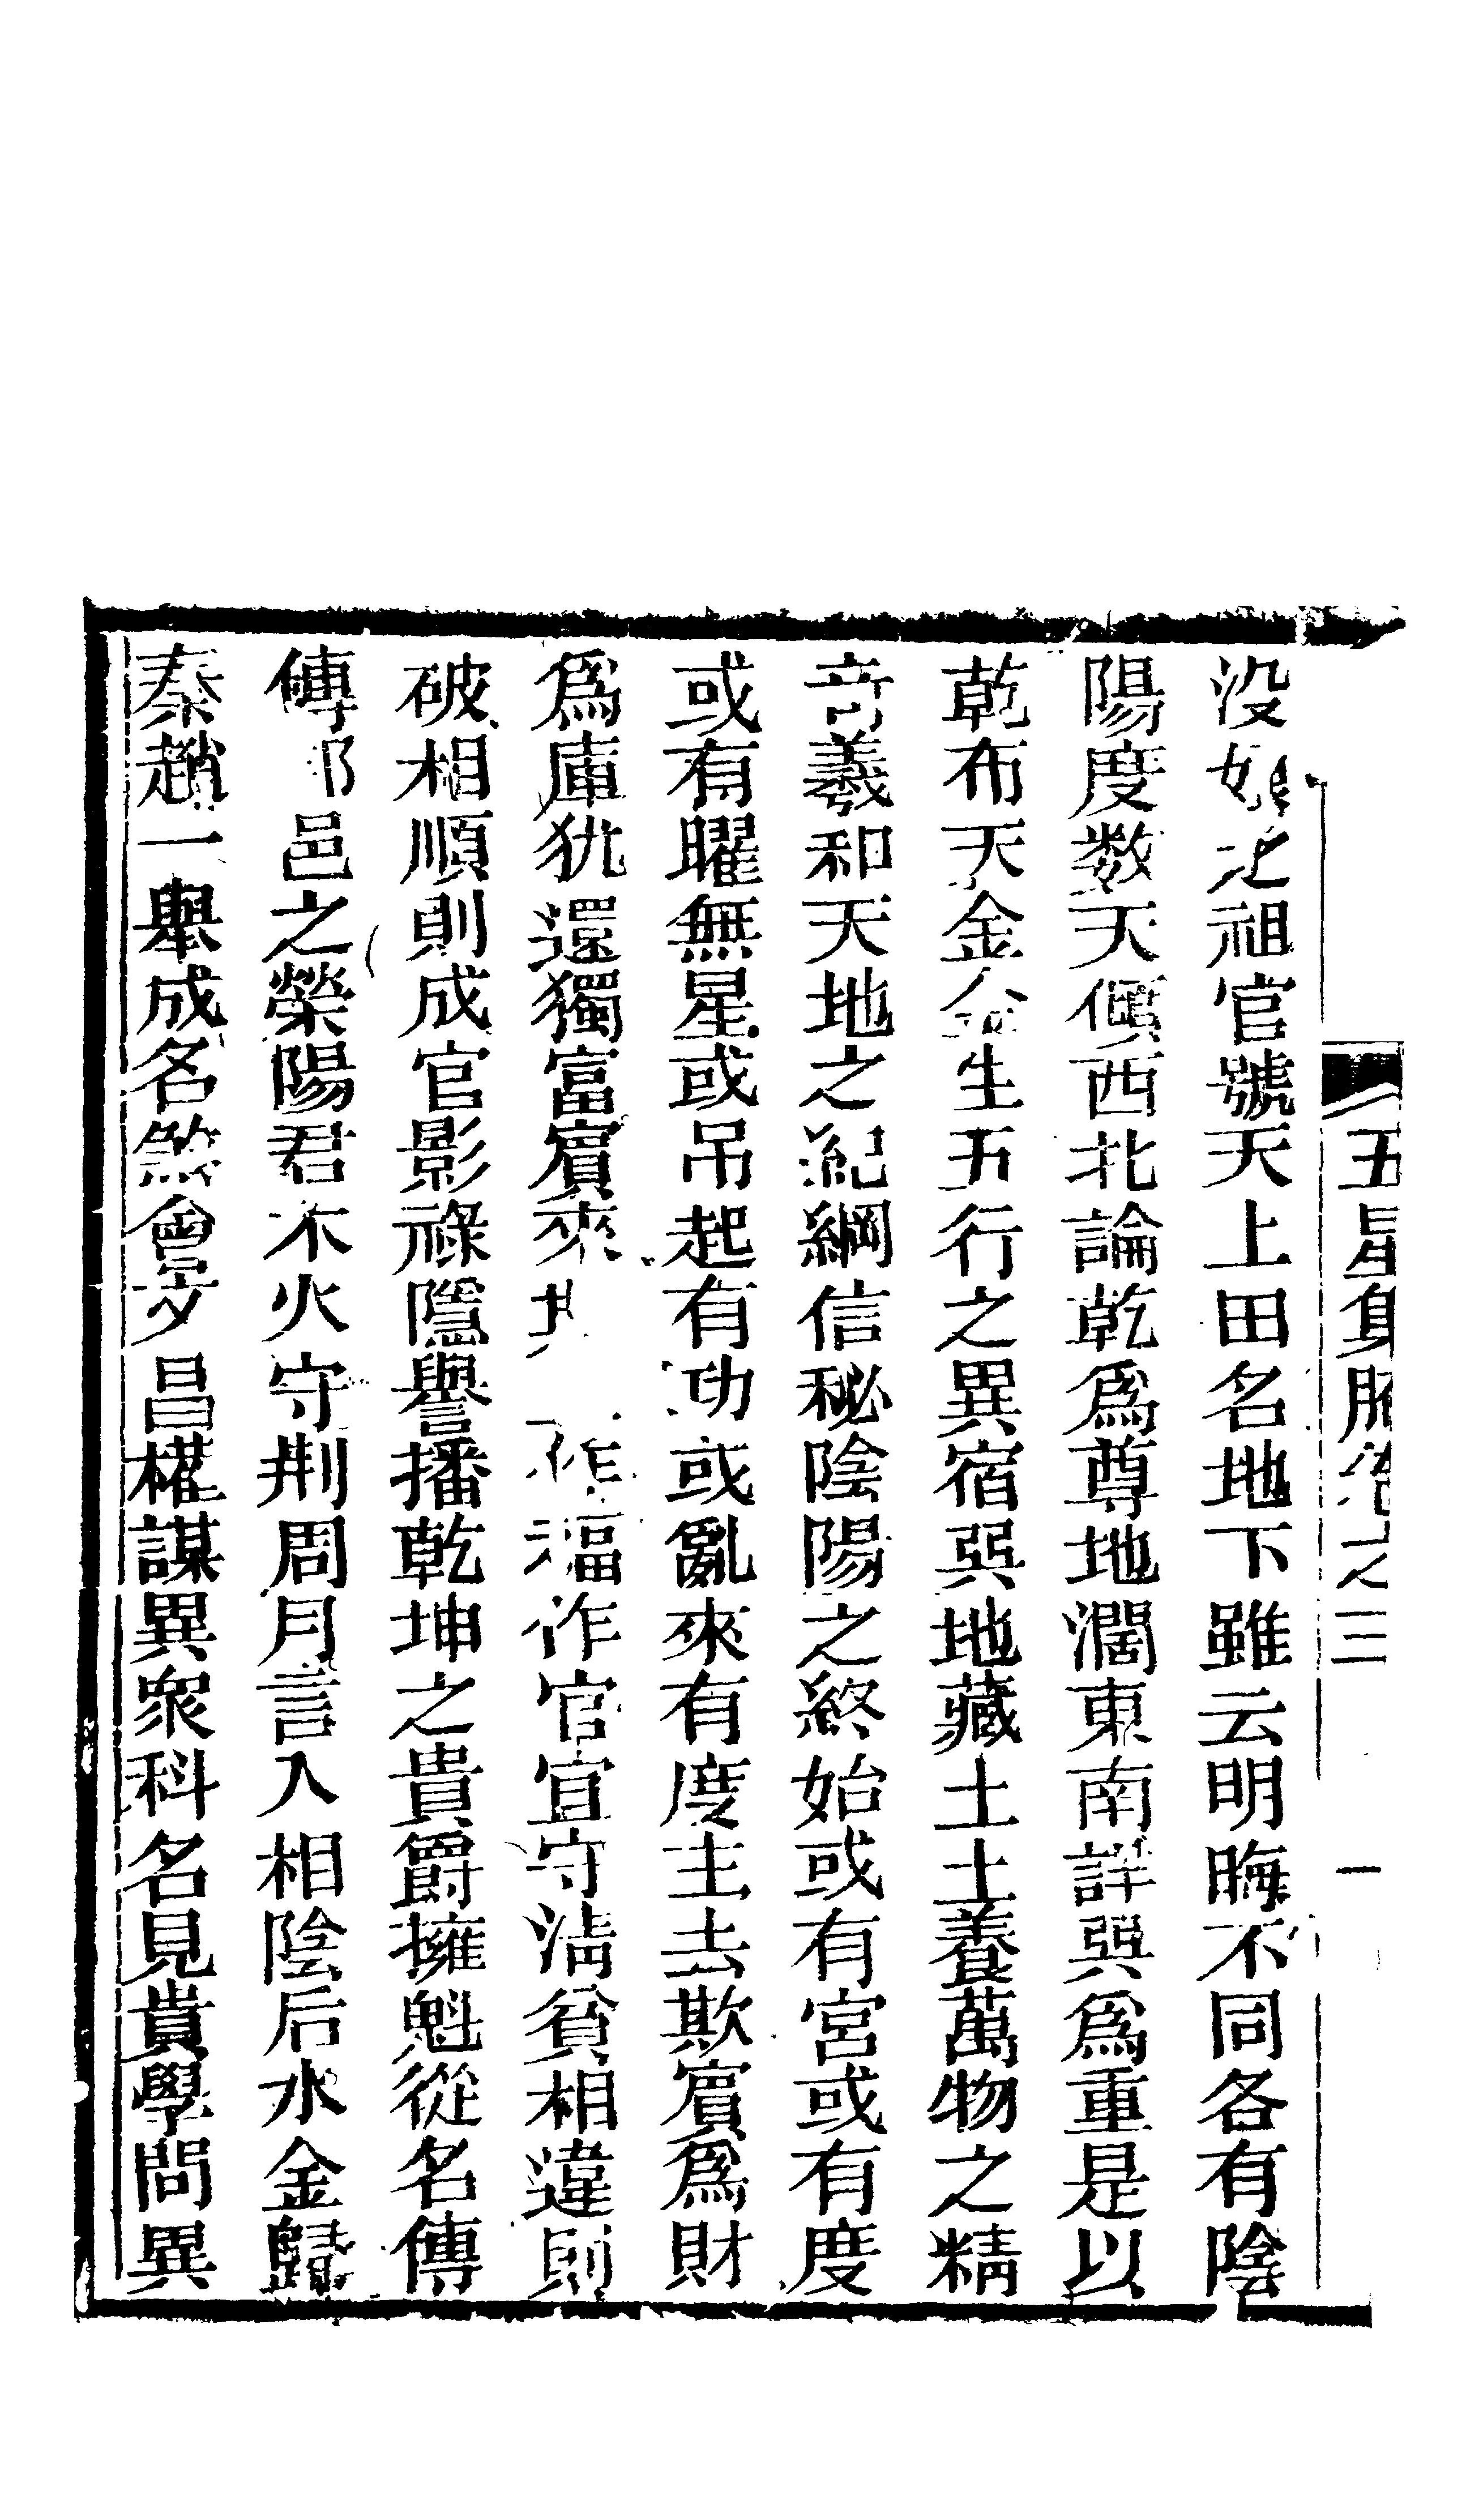 五星身脈卷之三 一
没 之祖官號天上田名地下雖云明晦不同各有陰
陽度数天傾西北論乾爲尊地濶東南詳巽爲重是以
乾布天金金生五行之異宿巽地藏土土養萬物之精
竒羲和天地之紀綱信秘陰陽之終始或有宮或有度
或有曜無星或吊起有功或亂來有度主去欺賔爲財
爲庫犹還獨富賔來 作福作官宜守淸貧相違則
破相順則成官影祿隱譽播乾坤之貴爵擁魁從名傳
傳 邑之榮陽君木火守荆周月言入相陰后水金歸
秦趙一舉成名煞會 昌權謀異衆科名見貴學問異